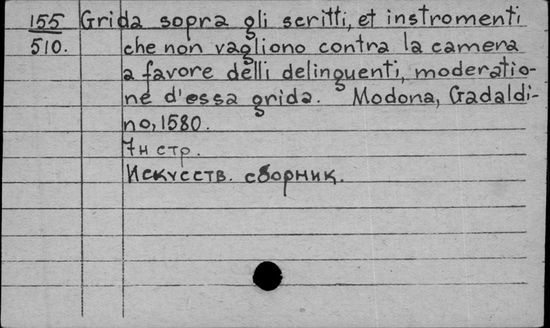 155 Grida sopra gli scritti, et instromenti
510. che non vagliono contra la camera
a favore delli delinquenti, moderatio-
ne d'essa grida. Modona, Gadaldi-
no, 1580.
7н стр.
Искусств. сборник.